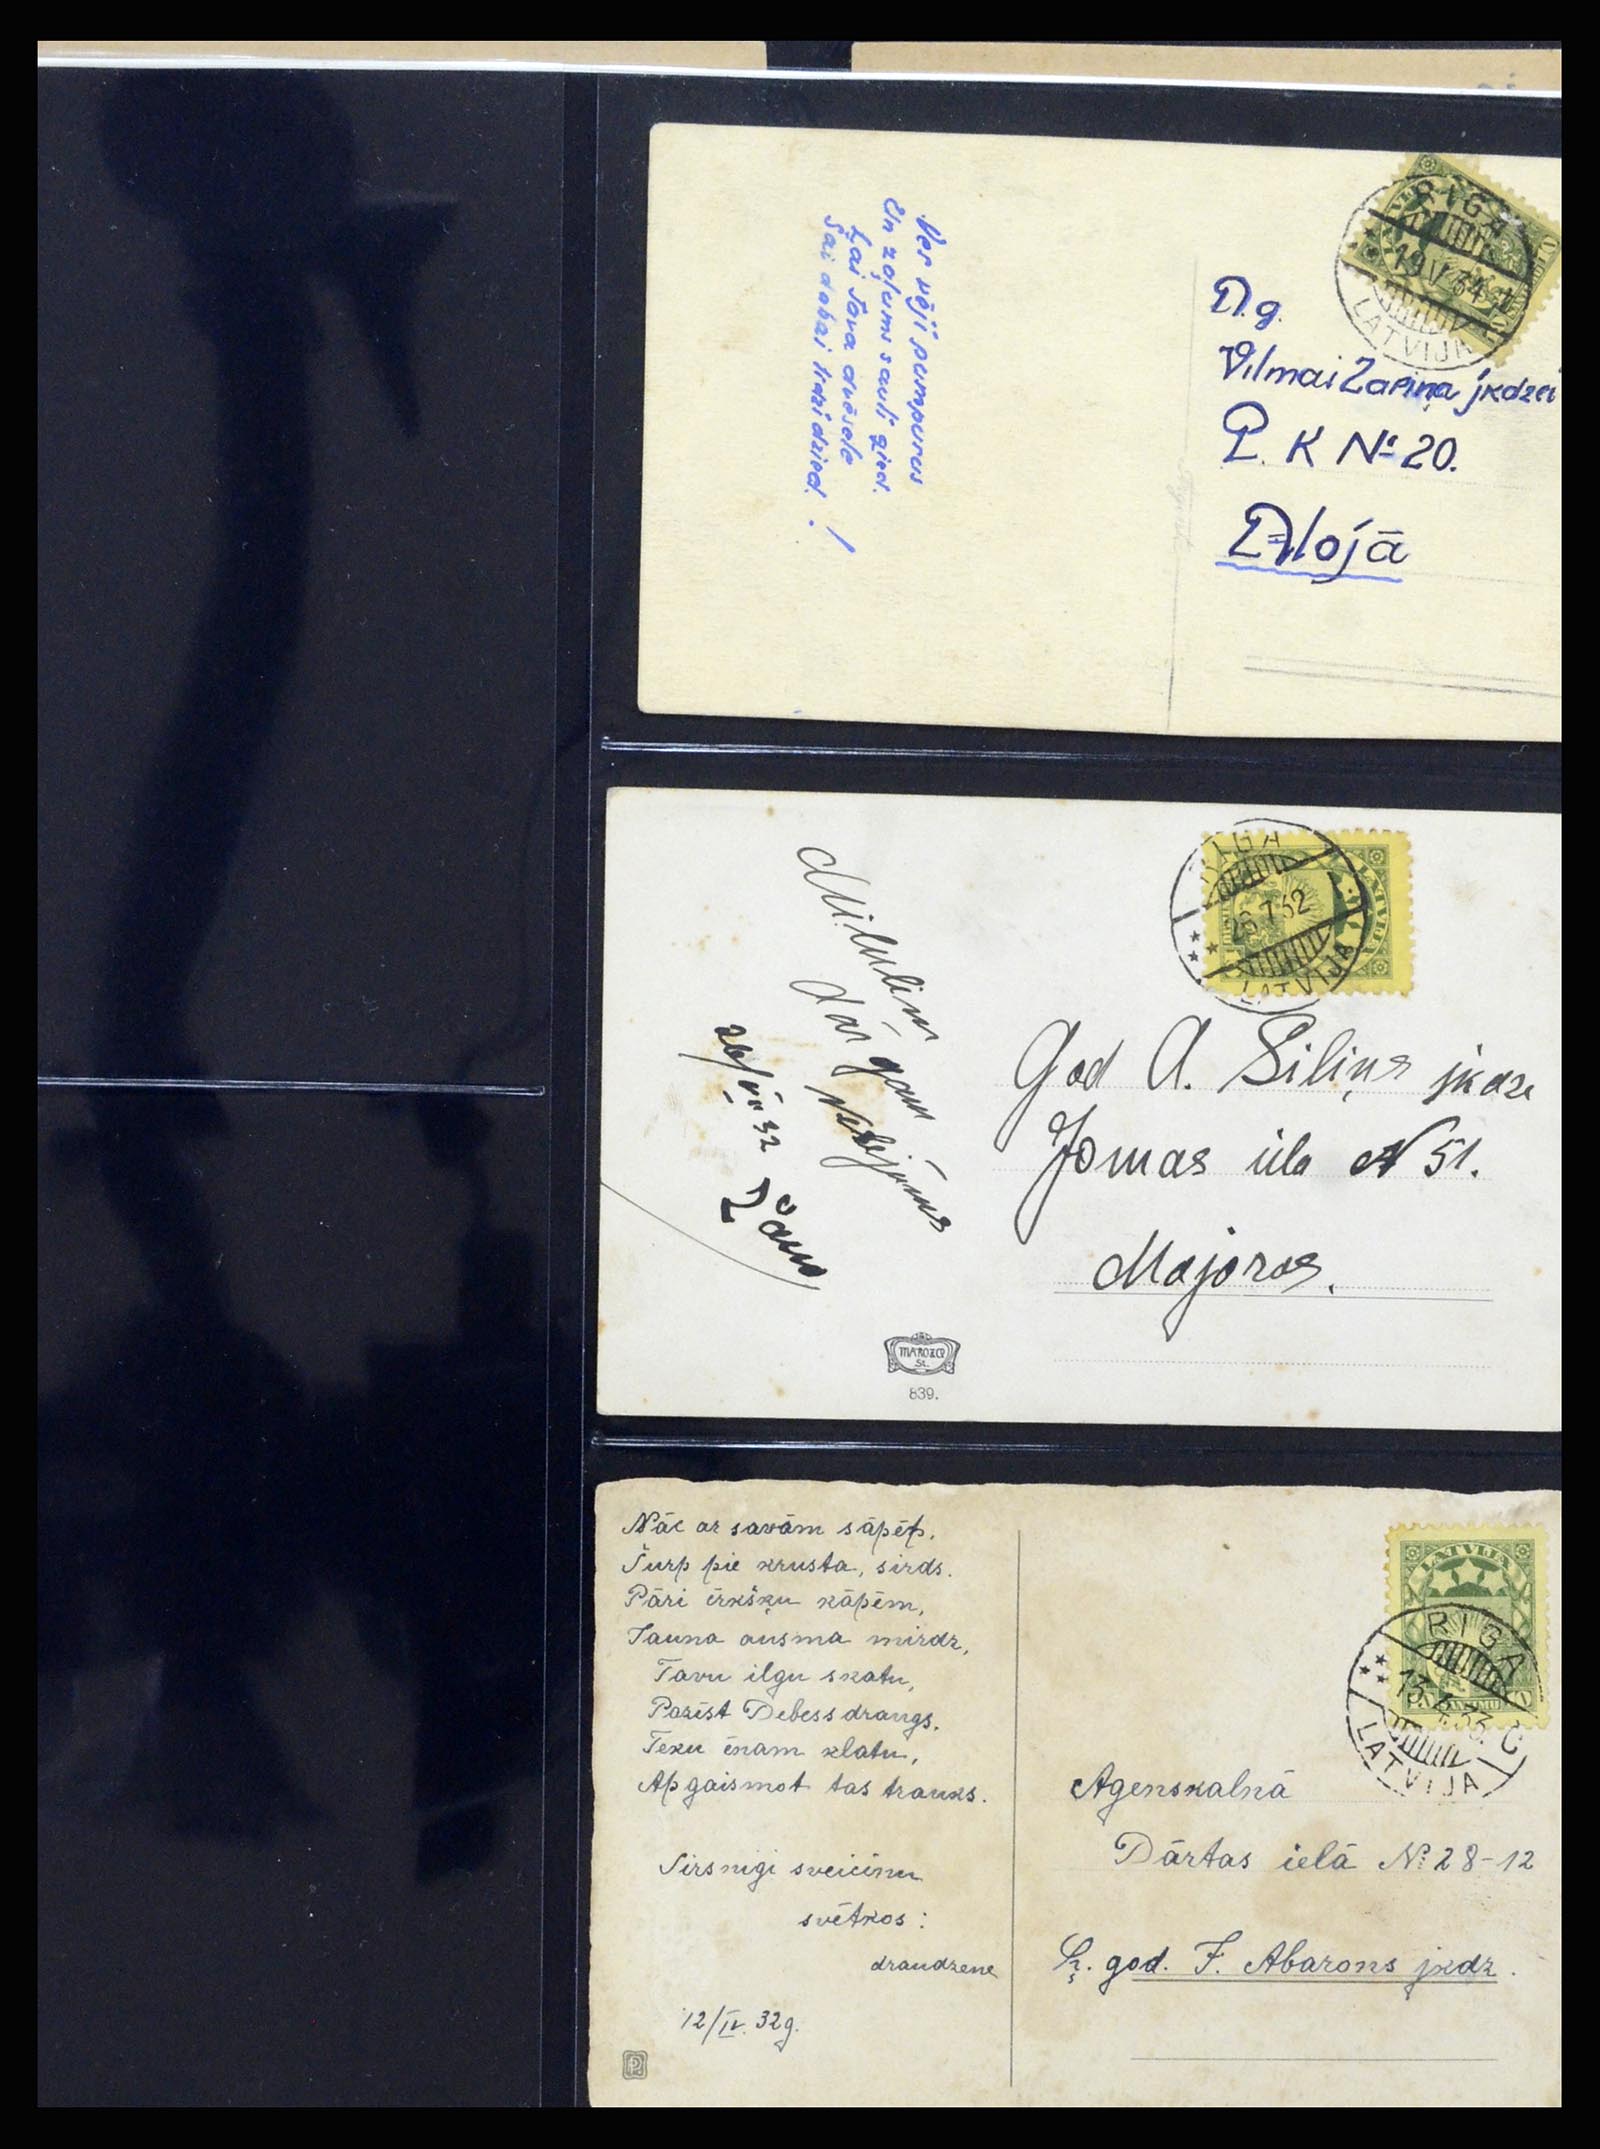 Ver vēji pumpurus
Un zaļums sauli zied.
Lai Tava dvēsele
Šai dabai līdzi dzied!
RIGA
19 V 34
LATVIJA
D.g.
Vilmai Zariņa jkdzei
P. K № 20.
Alojā
RIGA
26 7 32
LATVIJA
LATVIJA
Mīļulim
dār gam
26/VII 32
God A. Siliņs jkdze
Jomas iela N 51.
Majoros.
839.
Nāc ar savām sāpēp,
Šurp pie krusta, sirds.
Pāri ērkšķu kāpēm,
Jauna ausma mirdz,
Tavu ilgu skatu,
Pazīst Debess draugs.
Teku ēnam klatu,
Apgaismot tas trauks.
Sirsnigi sveicinu
svētkos:
draudzene
12/IV. 32g.
LATVIJA
RIGA
13. 33. C
LATVIJA
Agenskalnā
Dārtas ielā № 28-12
god. F. Abarons jkdz.